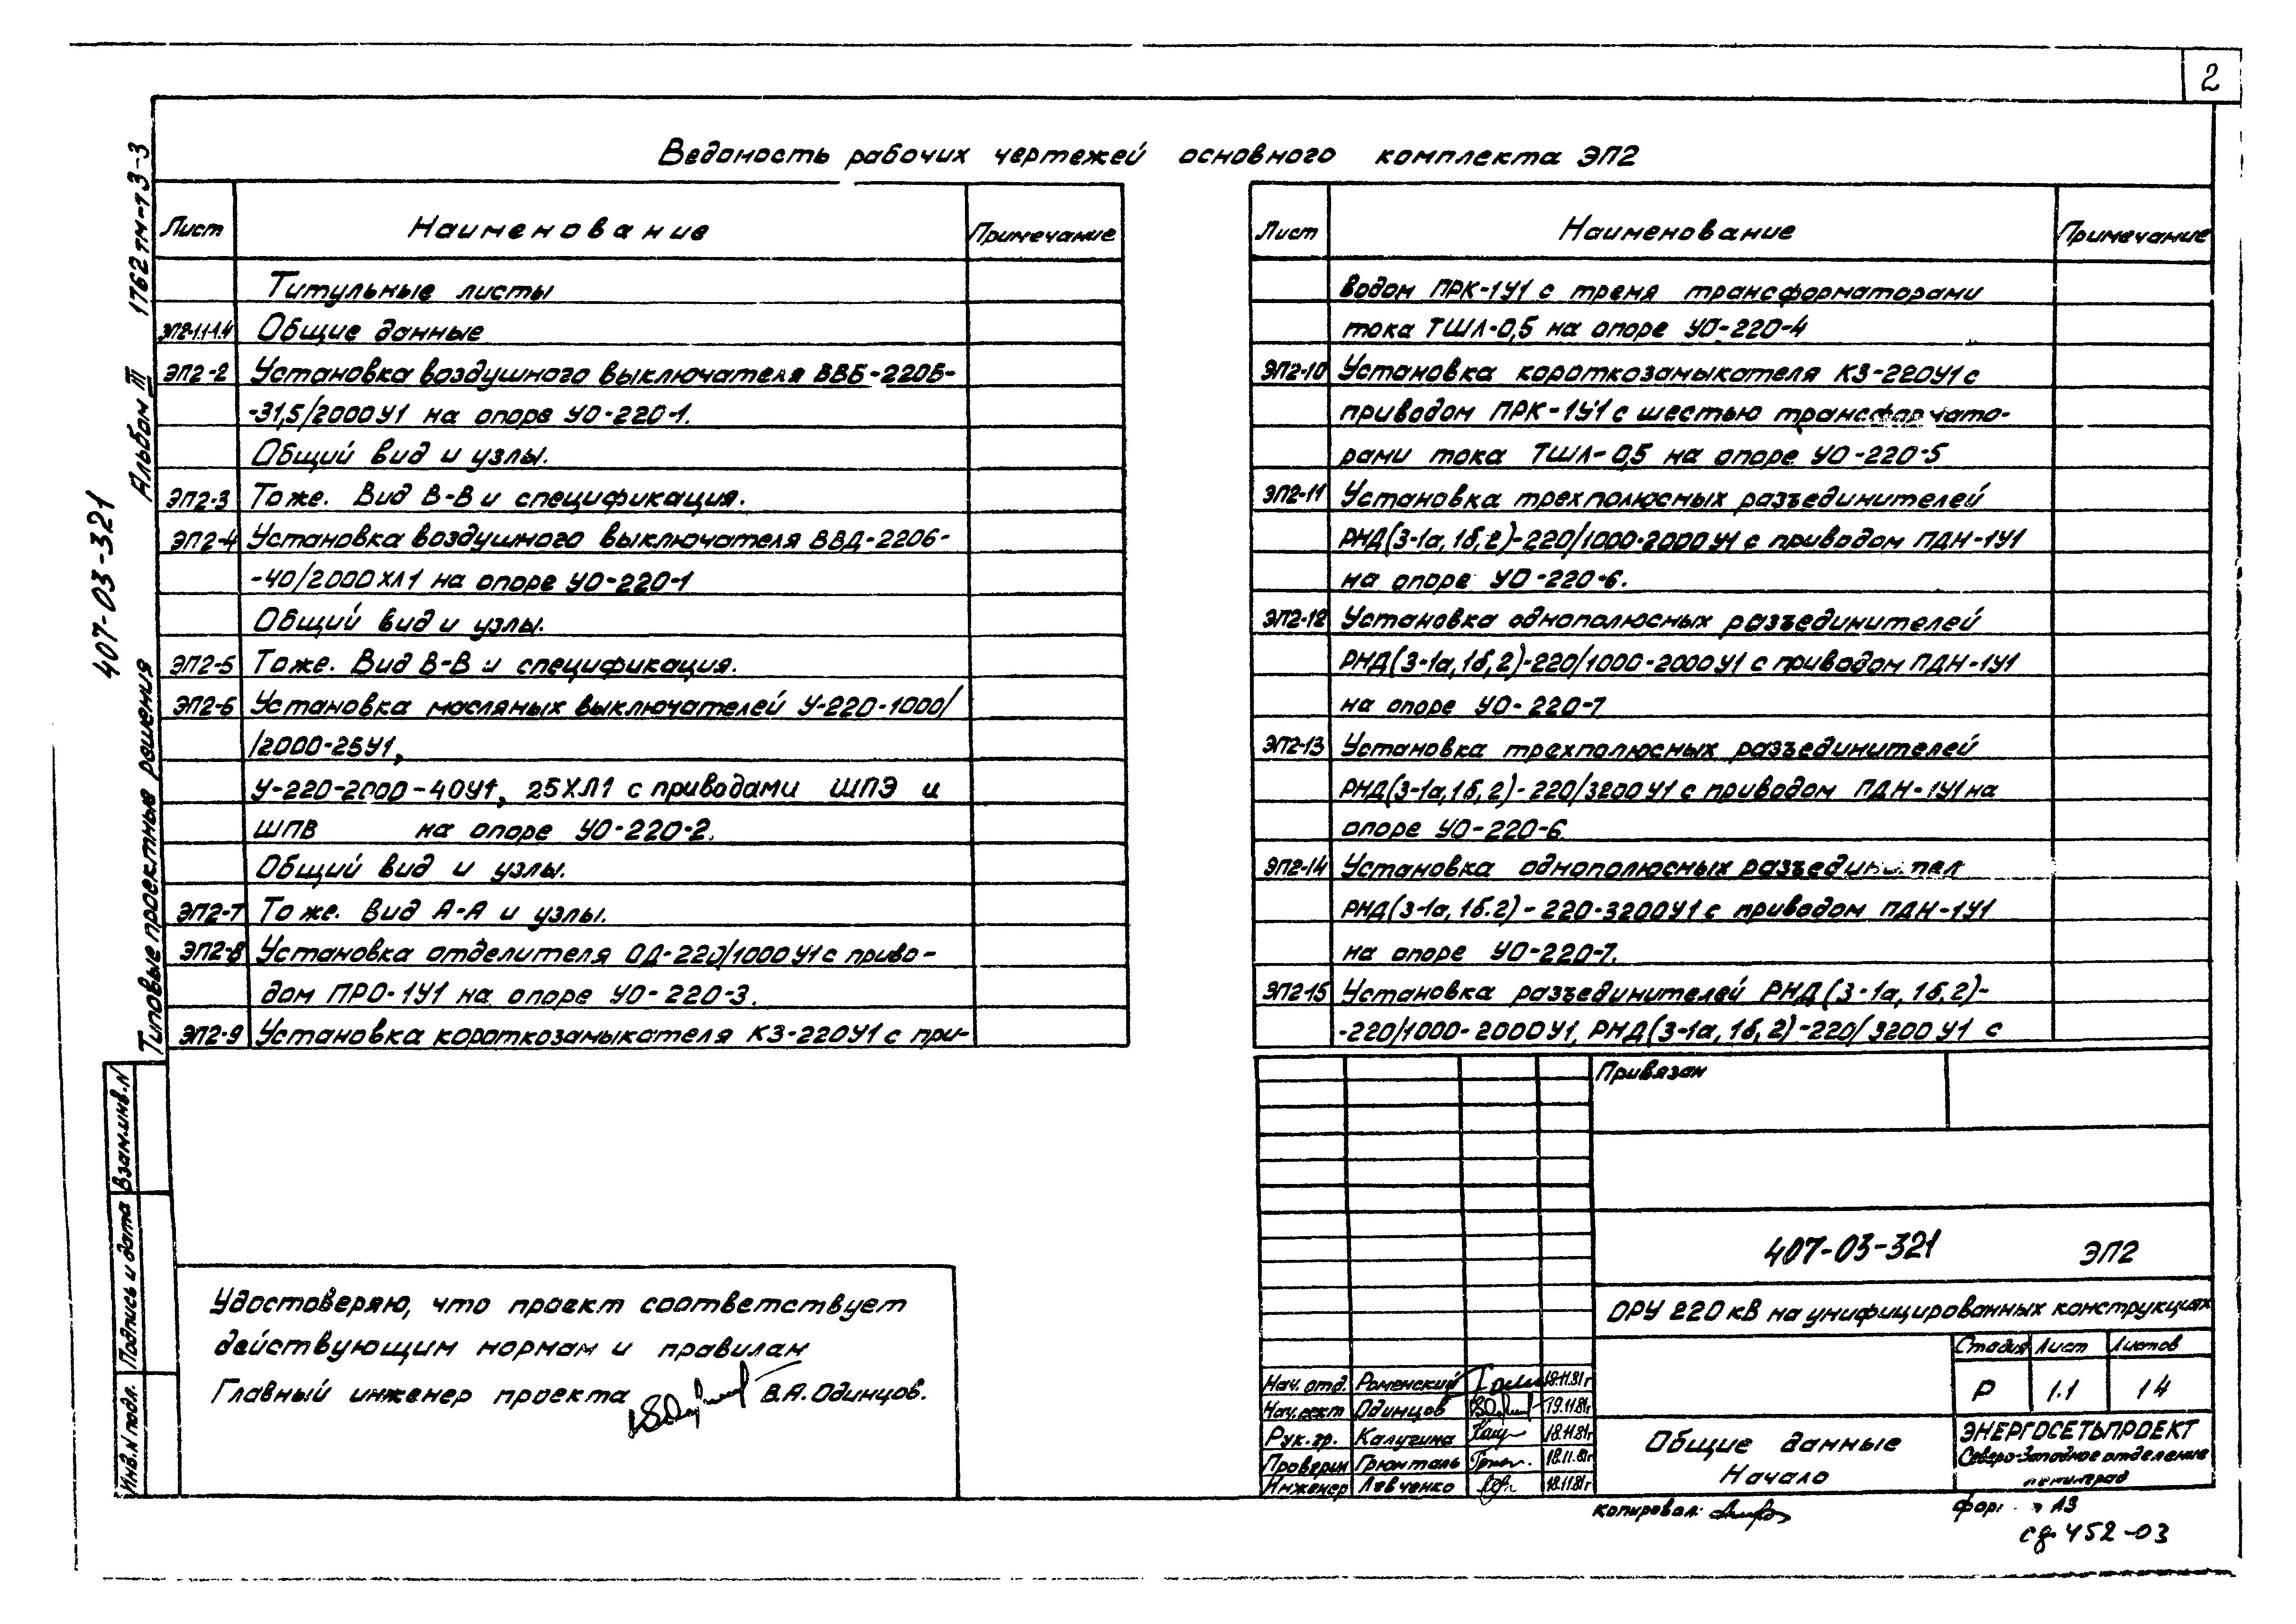 2
Ведомость рабочих чертежей основного комплекта ЭП2
Лист Наименование Примечание
Титульные листы
ЭП2-1.1-1.4 Общие данные
ЭП2-2 Установка воздушного выключателя ВВБ-220Б-
-31,5/2000У1 на опоре УО-220-1.
Общий вид и узлы.
ЭП2-3 То же. Вид В-В и спецификация.
ЭП2-4 Установка воздушного выключателя ВВД-220Б-
-40/2000ХЛ1 на опоре УО-220-1
Общий вид и узлы.
ЭП2-5 То же. Вид В-В и спецификация.
ЭП2-6 Установка масляных выключателей У-220-1000/
/2000-25У1,
У-220-2000-40У1, 25ХЛ1 с приводами ШПЭ и
ШПВ на опоре УО-220-2.
Общий вид и узлы.
ЭП2-7 То же. Вид А-А и узлы.
ЭП2-8 Установка отделителя ОД-220/1000У1 с приво-
дом ПРО-1У1 на опоре УО-220-3.
ЭП2-9 Установка короткозамыкателя КЗ-220У1 с при-
Лист Наименование Примечание
водом ПРК-1У1 с тремя трансформаторами
тока ТШЛ-0,5 на опоре УО-220-4
ЭП2-10 Установка короткозамыкателя КЗ-220У1 с
приводом ПРК-1У1 с шестью трансформато-
рами тока ТШЛ-0,5 на опоре УО-220-5
ЭП2-11 Установка трехполюсных разъединителей
РНД(3-1а, 1б, 2)-220/1000-2000У1 с приводом ПДН-1У1
на опоре УО-220-6.
ЭП2-12 Установка однополюсных разъединителей
РНД(3-1а, 1б, 2)-220/1000-2000У1 с приводом ПДН-1У1
на опоре УО-220-7
ЭП2-13 Установка трехполюсных разъединителей
РНД(3-1а, 1б, 2)-220/3200У1 с приводом ПДН-1У1 на
опоре УО-220-6
ЭП2-14 Установка однополюсных разъединител
РНД(3-1а, 1б.2)-220-3200У1 с приводом ПДН-1У1
на опоре УО-220-7.
ЭП2-15 Установка разъединителей РНД(3-1а, 1б, 2)-
-220/1000-2000У1, РНД(3-1а, 1б, 2)-220/3200У1 с
407-03-321
Типовые проектные решения Альбом III 1762тм-т3-3
Взам.инв.N
Подпись и дата
Инв.N подл.
Удостоверяю, что проект соответствует
действующим нормам и правилам
Главный инженер проекта В.А.Одинцов.
Привязан
407-03-321 ЭП2
ОРУ 220 кВ на унифицированных конструкциях
Стадия Лист Листов
Р 1.1 14
Нач. отд. Роменский 18.11.81г
Нач.сект Одинцов 19.11.81г
Рук. гр. Калугина 18.11.81г
Проверил Грюнталь 18.11.81г
Инженер Левченко 18.11.81г
Общие данные
Начало
ЭНЕРГОСЕТЬПРОЕКТ
Северо-Западное отделение
Ленинград
Копировал:
А3
сф 452-03